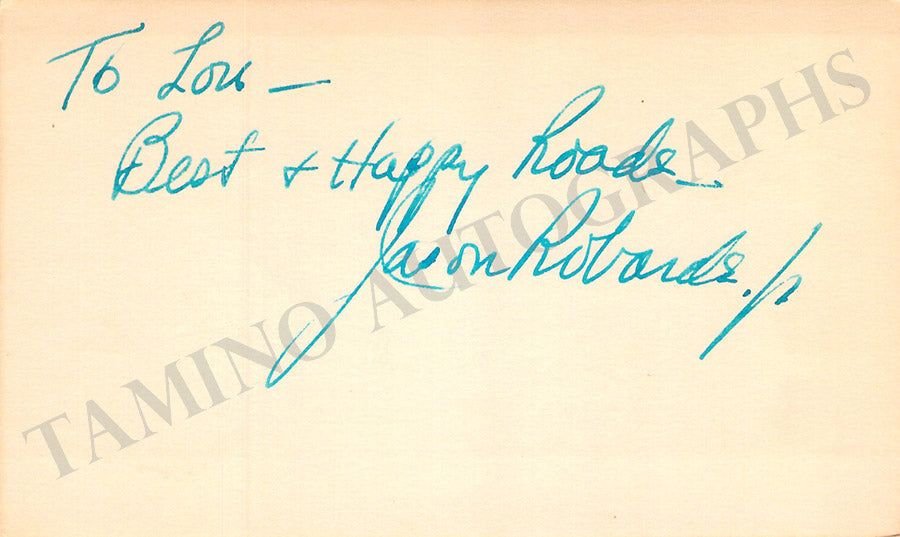 To Lou —
Best + Happy Roads —
Jason Robards. Jr
TAMINO AUTOGRAPHS